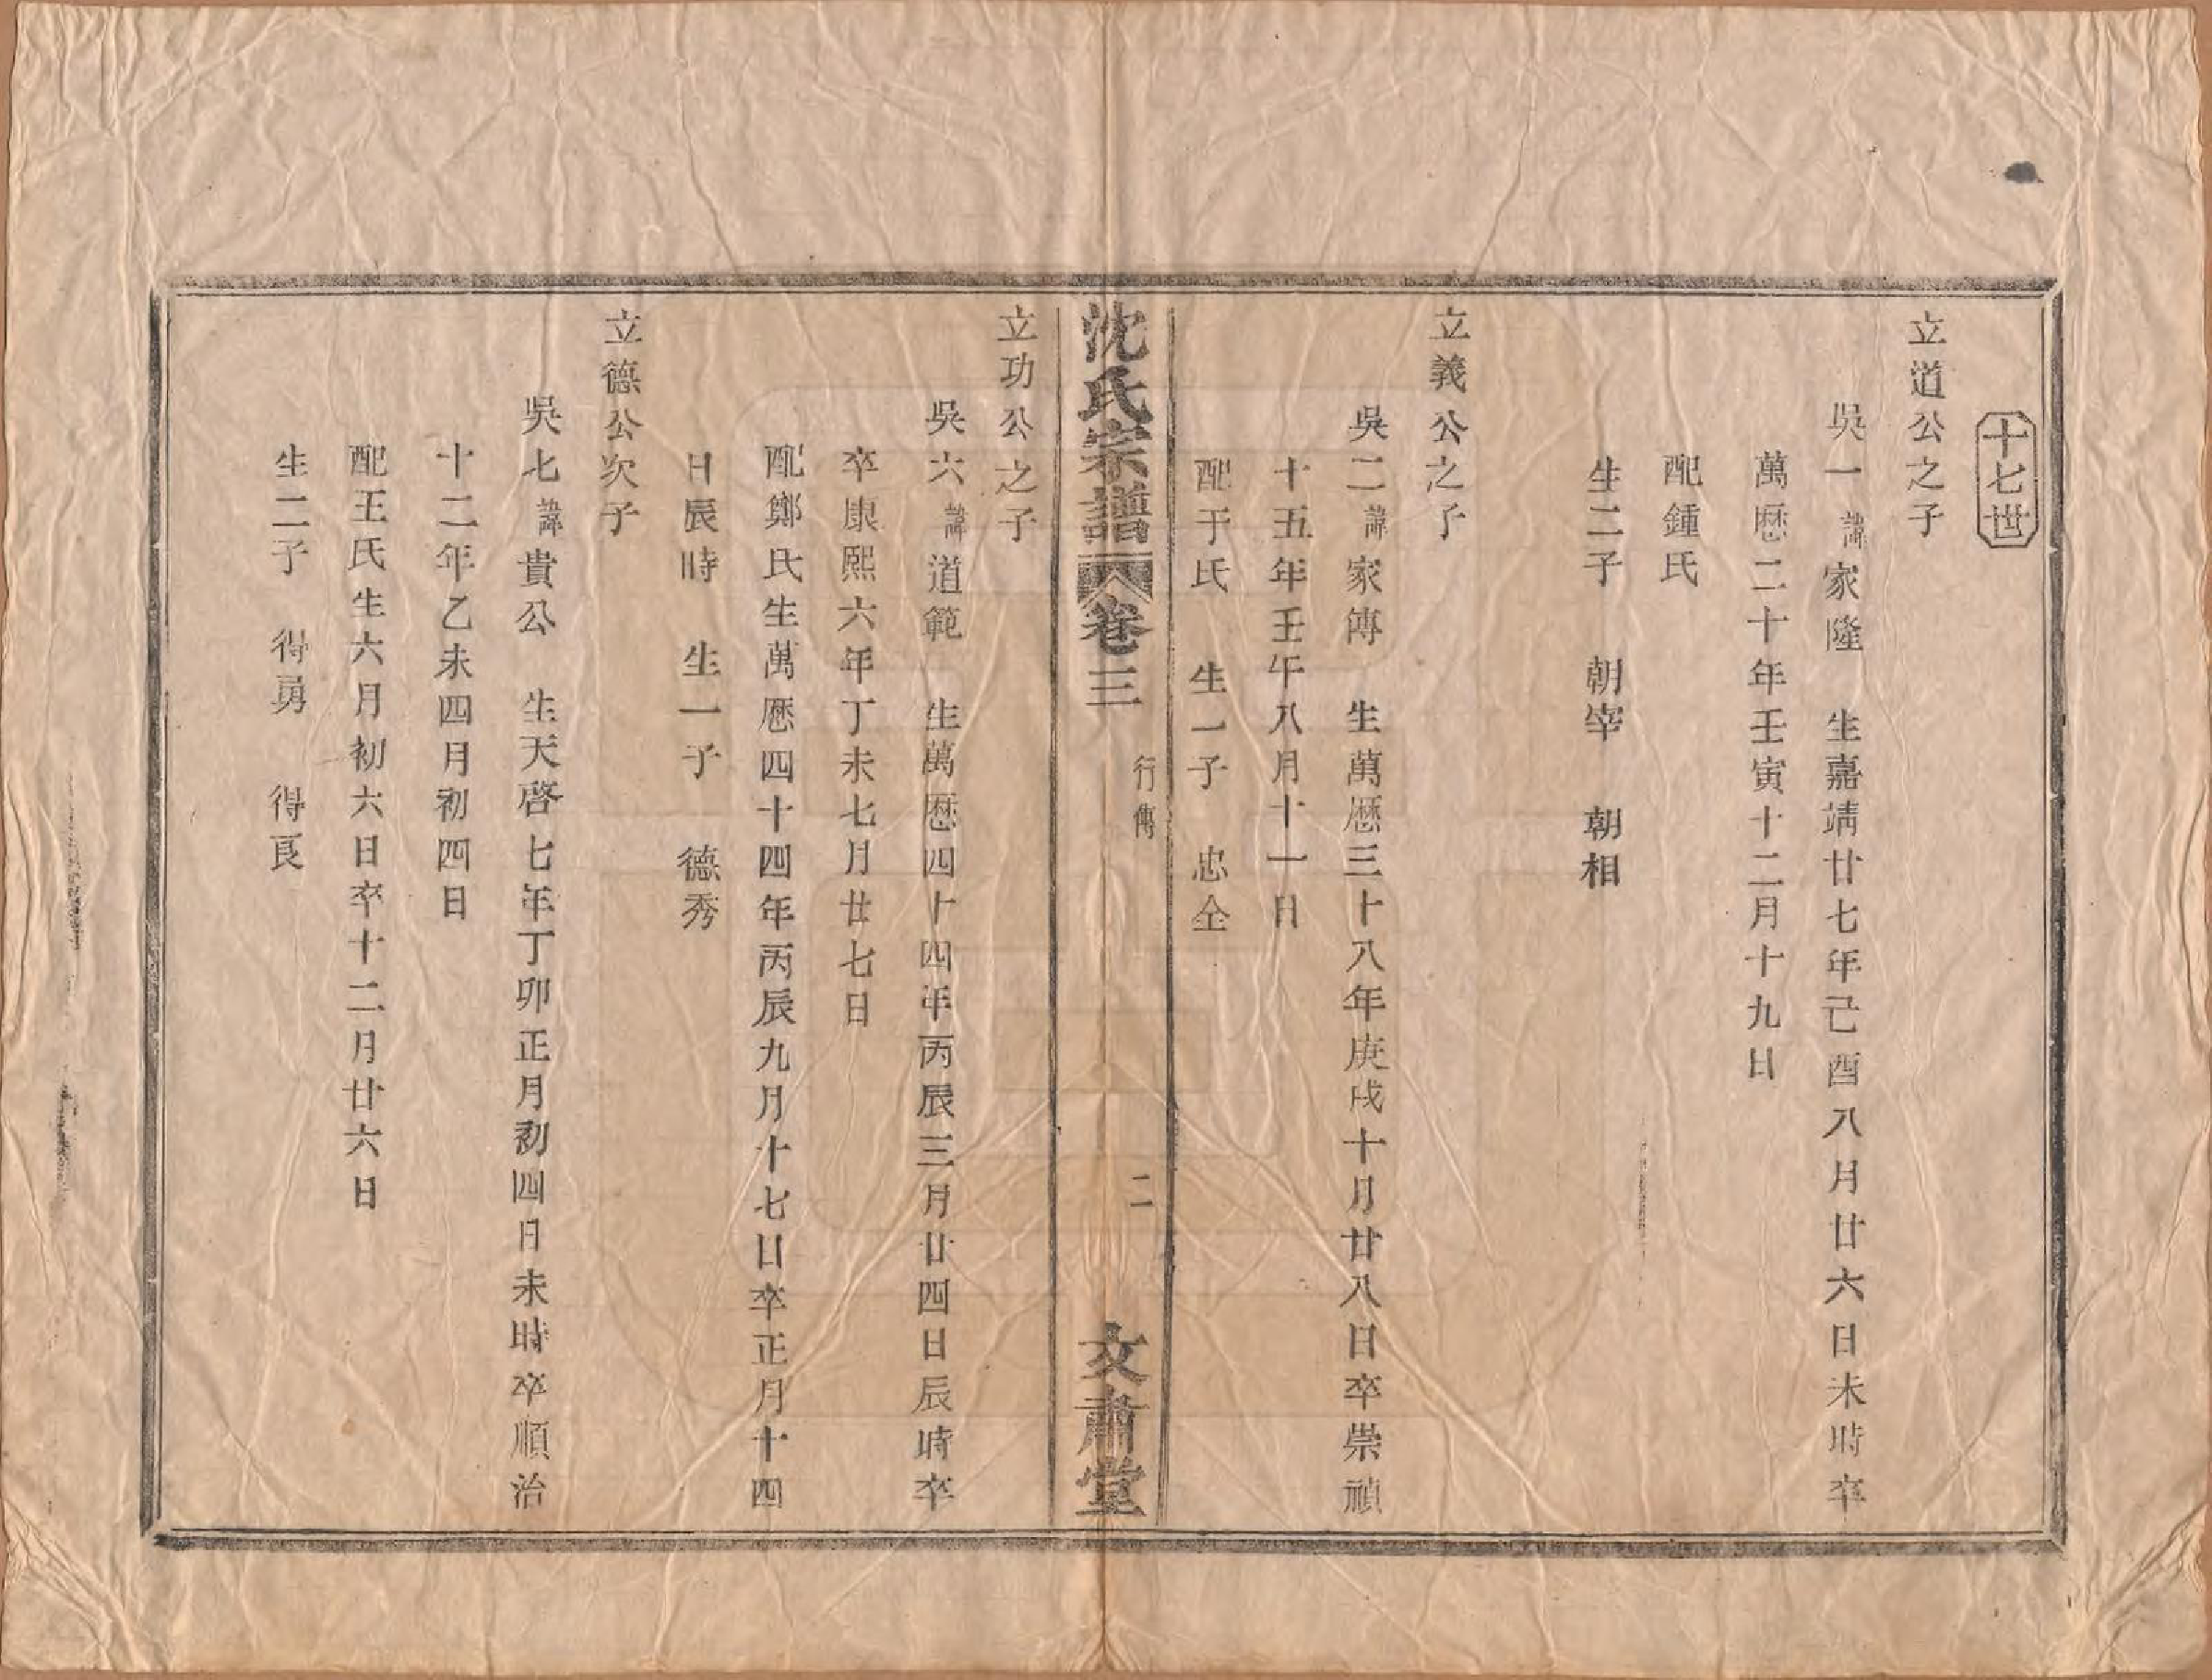 十七世
立道公之子
吳一諱家隆　生嘉靖廿七年己酉八月廿六日未時卒
萬歷二十年壬寅十二月十九日
配鍾氏
生二子　朝宰　朝相
立義公之子
吳二諱家傳　生萬歷三十八年庚戌十月廿八日卒崇禎
十五年壬午八月十一日
配于氏　生一子　忠全
沈氏宗譜　卷三　行傳　二　文肅堂
立功公之子
吳六諱道範　生萬歷四十四年丙辰三月廿四日辰時卒
卒康熙六年丁未七月廿七日
配鄭氏生萬歷四十四年丙辰九月十七日卒正月十四
日辰時　生一子　德秀
立德公次子
吳七諱貴公　生天啓七年丁卯正月初四日未時卒順治
十二年乙未四月初四日
配王氏生六月初六日卒十二月廿六日
生二子　得勇　得良